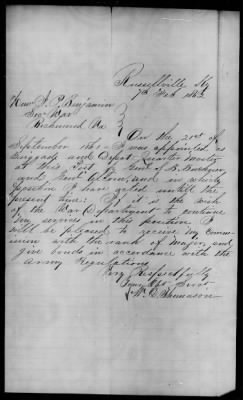 Russellville Ky
7th Feb 1862
Honl J. P. Benjamin
Secy War
Richmond Va
On the 21st of
September 1861 I was appointed as
Brigade and Post Quarter Master
at this Post Genl S. B. Buckner
and Genl and
I have acted untill the
present time. If it is the wish
of the War Department to continue
my services in this position I
will be pleased to receive my commi-
ssion with the rank of major, and
give bonds in accordance with the
Army Regulations
Very Respectfully
Your Obt Servt
Thomason